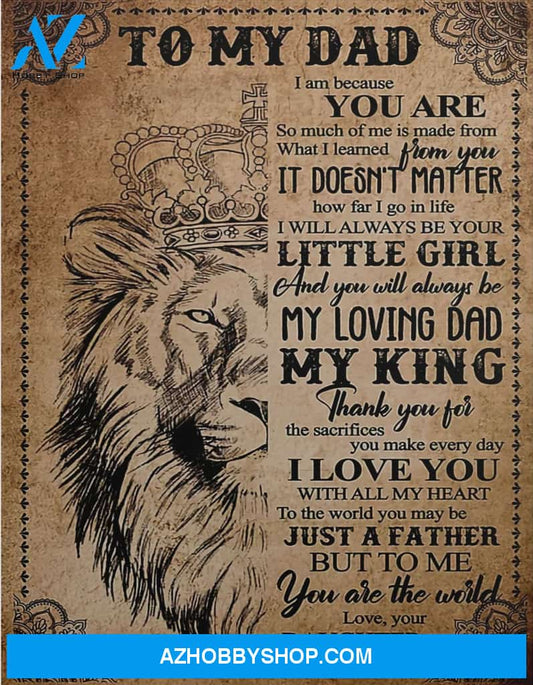 AZ
HOBBY SHOP
TO MY DAD
I am because
YOU ARE
So much of me is made from
What I learned from you
IT DOESN'T MATTER
how far I go in life
I WILL ALWAYS BE YOUR
LITTLE GIRL
And you will always be
MY LOVING DAD
MY KING
Thank you for
the sacrifices
you make every day
I LOVE YOU
WITH ALL MY HEART
To the world you may be
JUST A FATHER
BUT TO ME
You are the world
Love, your
AZHOBBYSHOP.COM